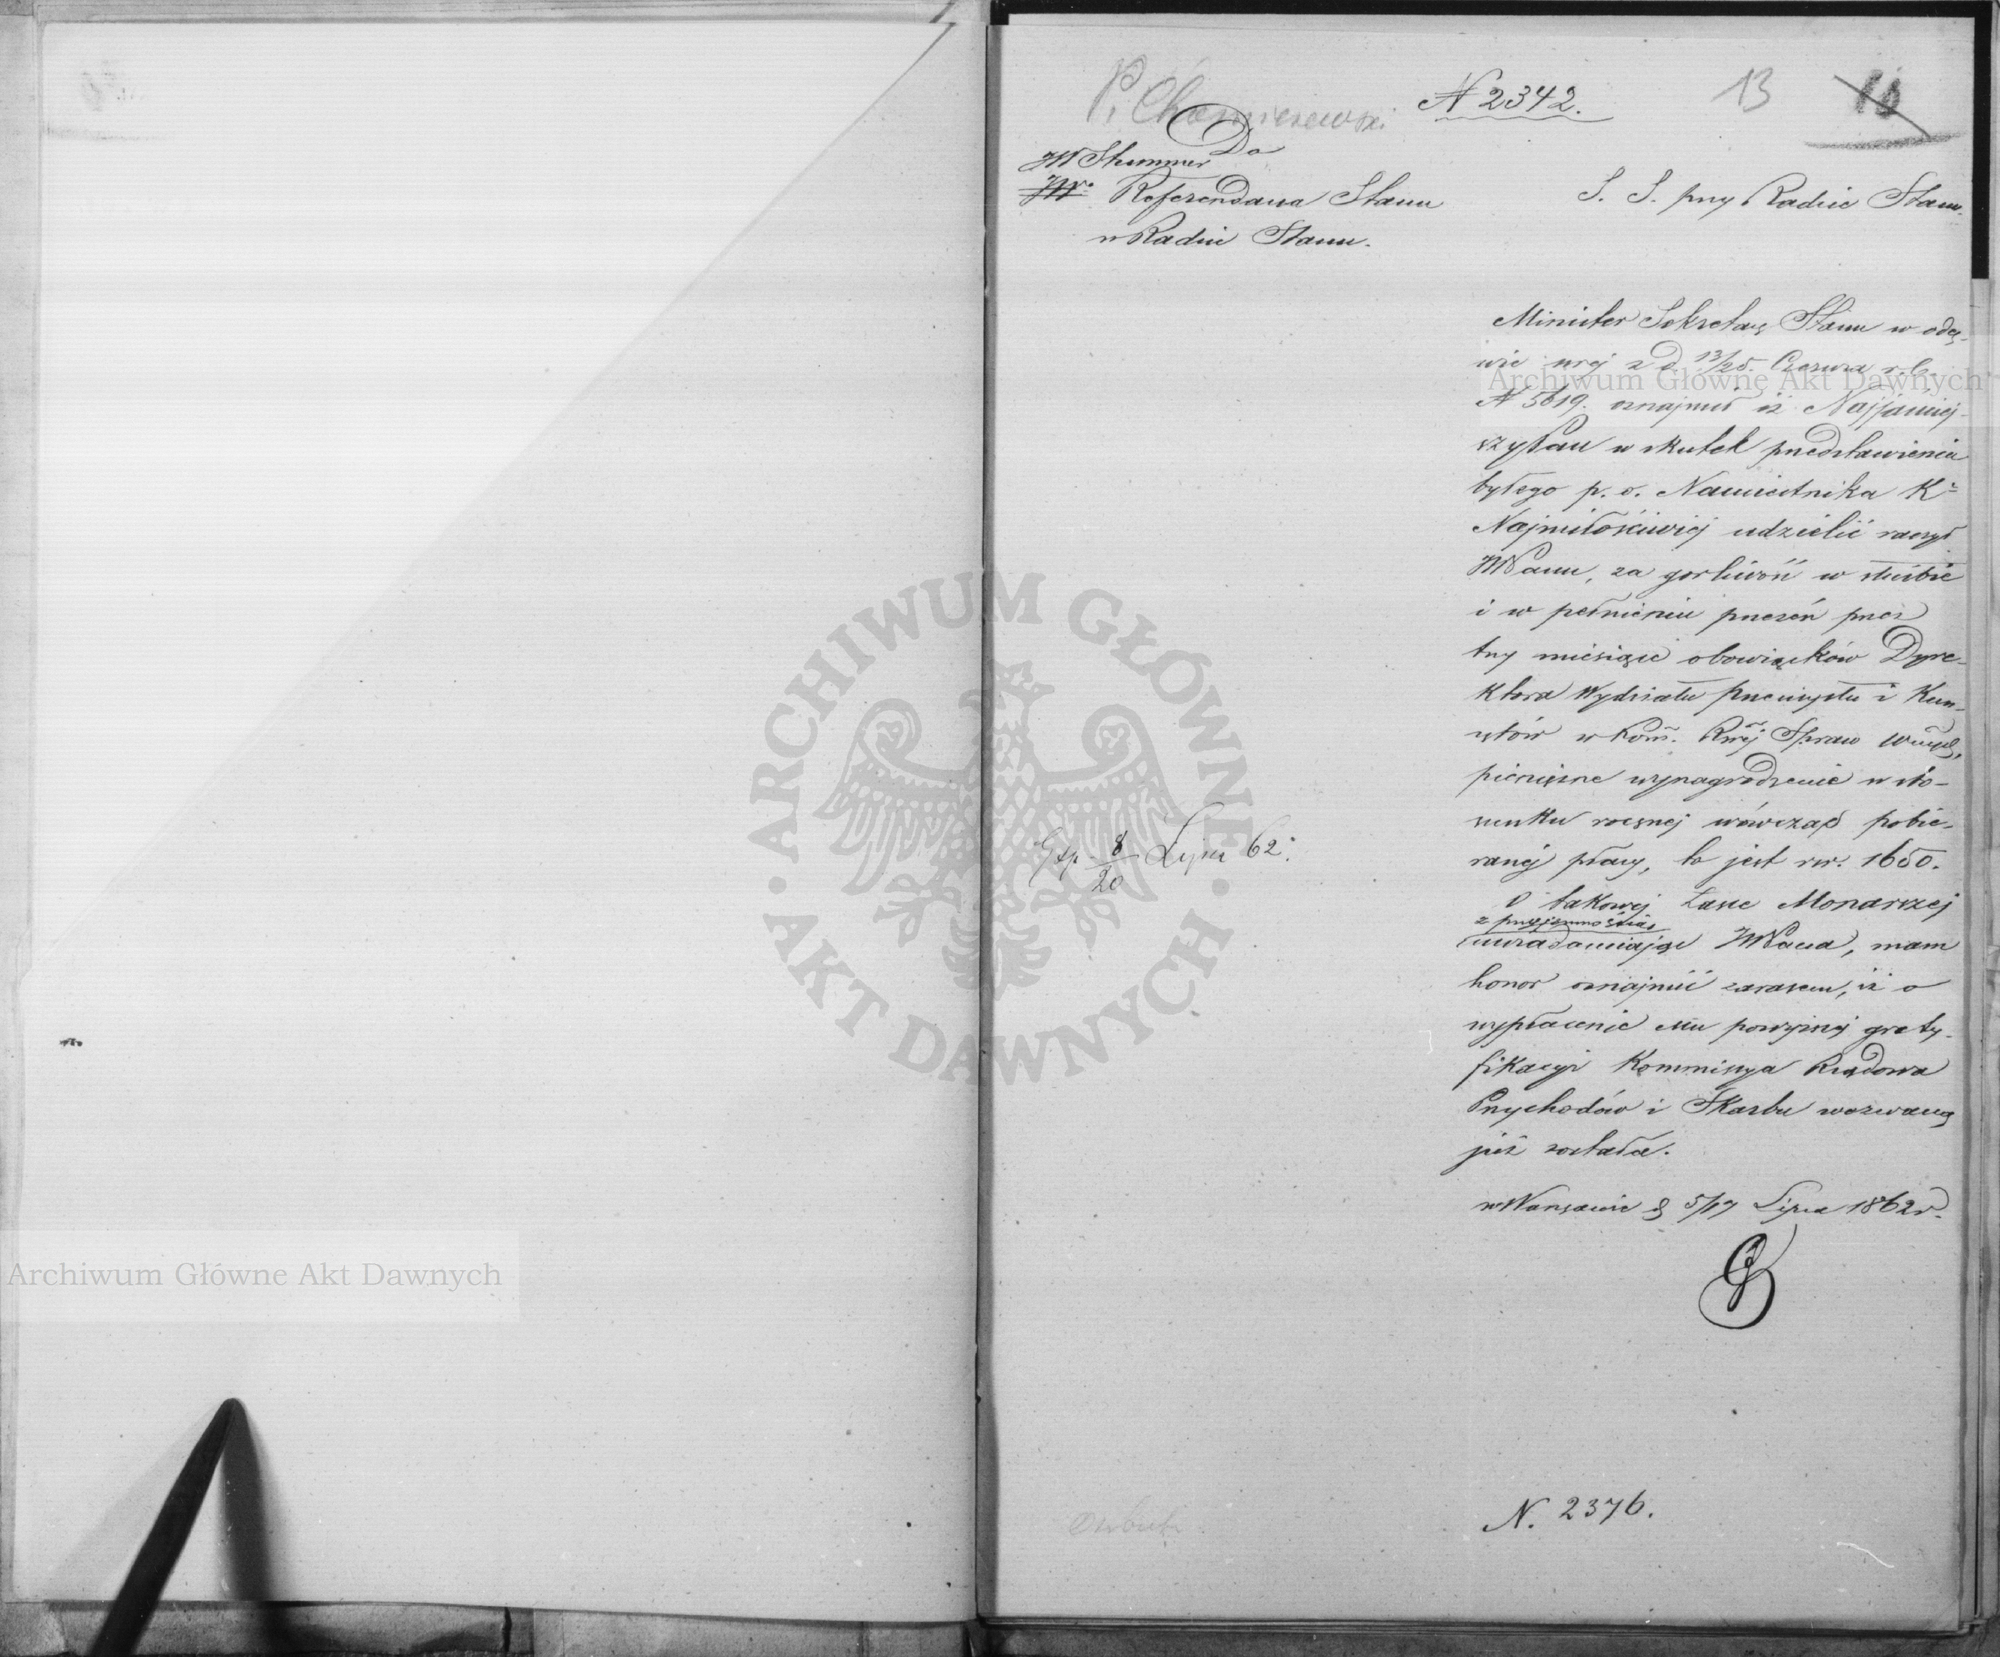 P. Chomiczewski
N 2342.
13
10
Do
JW Stummer
JWo Referendarza Stanu
w Radzie Stanu.
S. S. przy Radzie Stanu.
Minister Sekretarz Stanu w odez-
wie swej z d. 13/25. Czerwca r. b.
N 5619. oznajmił iż Najjaśniej-
szy Pan w skutek przedstawienia
byłego p. o. Namiestnika K=
Najmiłościwiej udzielić raczył
JWPanu, za gorliwość w służbie
i w pełnieniu przezeń przez
trzy miesiące obowiązków Dyre-
ktora Wydziału przemysłu i Kun-
sztów w Kom. Rwej Spraw Wewn.,
pieniężne wynagrodzenie w sto-
sunku rocznej wówczas pobie-
ranej płacy, to jest rsr. 1650.
O takowej Łasce Monarszej
z przyjemnością
uwiadamiając JWPana, mam
honor oznajmić zarazem, iż o
wypłacenie mu powyższej graty-
fikacyi Kommissya Rządowa
Przychodów i Skarbu wezwaną
już została.
w Warszawie d 5/17 Lipca 1862 r.
Exp. 8/20 Lipca 62.
N. 2376.
Archiwum Główne Akt Dawnych
Archiwum Główne Akt Dawnych
ARCHIWUM GŁÓWNE
AKT DAWNYCH